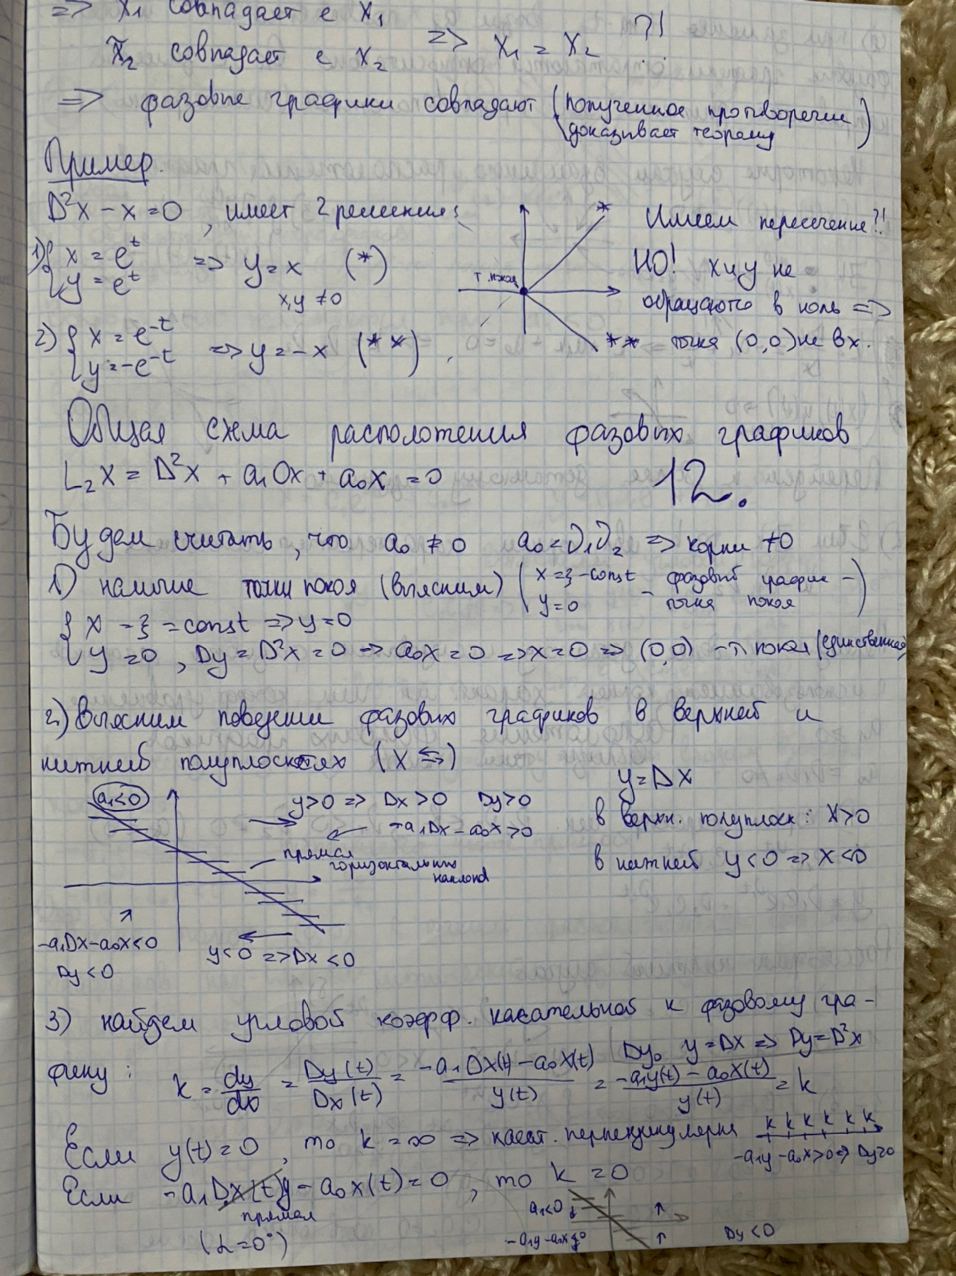 => x̃₁ совпадает с x₁
x̃₂ совпадает с x₂ => x₁ = x₂ ?!
=> фазовые графики совпадают (полученное противоречие доказывает теорему)
Пример.
D²x - x = 0, имеет 2 решения:
1) { x = eᵗ
y = eᵗ => y = x (*)
x,y ≠ 0
2) { x = e⁻ᵗ
y = -e⁻ᵗ => y = -x (**)
т. покоя
*
**
Имеем пересечение?!
НО! x и y не
обращаются в ноль =>
точка (0,0) не вх.
Общая схема расположения фазовых графиков
L₂x = D²x + a₁Dx + a₀x = 0
12.
Будем считать, что a₀ ≠ 0 a₀ = λ₁λ₂ => корни ≠0
1) наличие точки покоя (выясним) ( x = ξ - const - фазовый график -
y = 0 - точка покоя )
{ x = ξ = const => y = 0
y = 0, Dy = D²x = 0 => a₀x = 0 => x = 0 => (0,0) - т. покоя (единственная)
2) Выясним поведение фазовых графиков в верхней и
нижней полуплоскостях (x ⇆)
a₁<0
y>0 => Dx>0 Dy>0
-a₁Dx - a₀x > 0
прямая
горизонтальных
наклонов
-a₁Dx - a₀x < 0
Dy < 0
y<0 => Dx < 0
y = Dx
в верхн. полуплоск: x>0
в нижней y<0 => x<0
3) найдем угловой коэфф. касательной к фазовому гра-
фику: k = dy/dx = Dy(t)/Dx(t) = (-a₁Dx(t) - a₀x(t))/y(t) = (-a₁y(t) - a₀x(t))/y(t) = k
y = Dx => Dy = D²x
Если y(t) = 0, то k = ∞ => касат. перпендикулярна
k k k k k k
-a₁y - a₀x > 0 => Dy>0
Если -a₁y - a₀x(t) = 0, то k = 0
прямая
(α = 0°)
a₁<0
Dy < 0